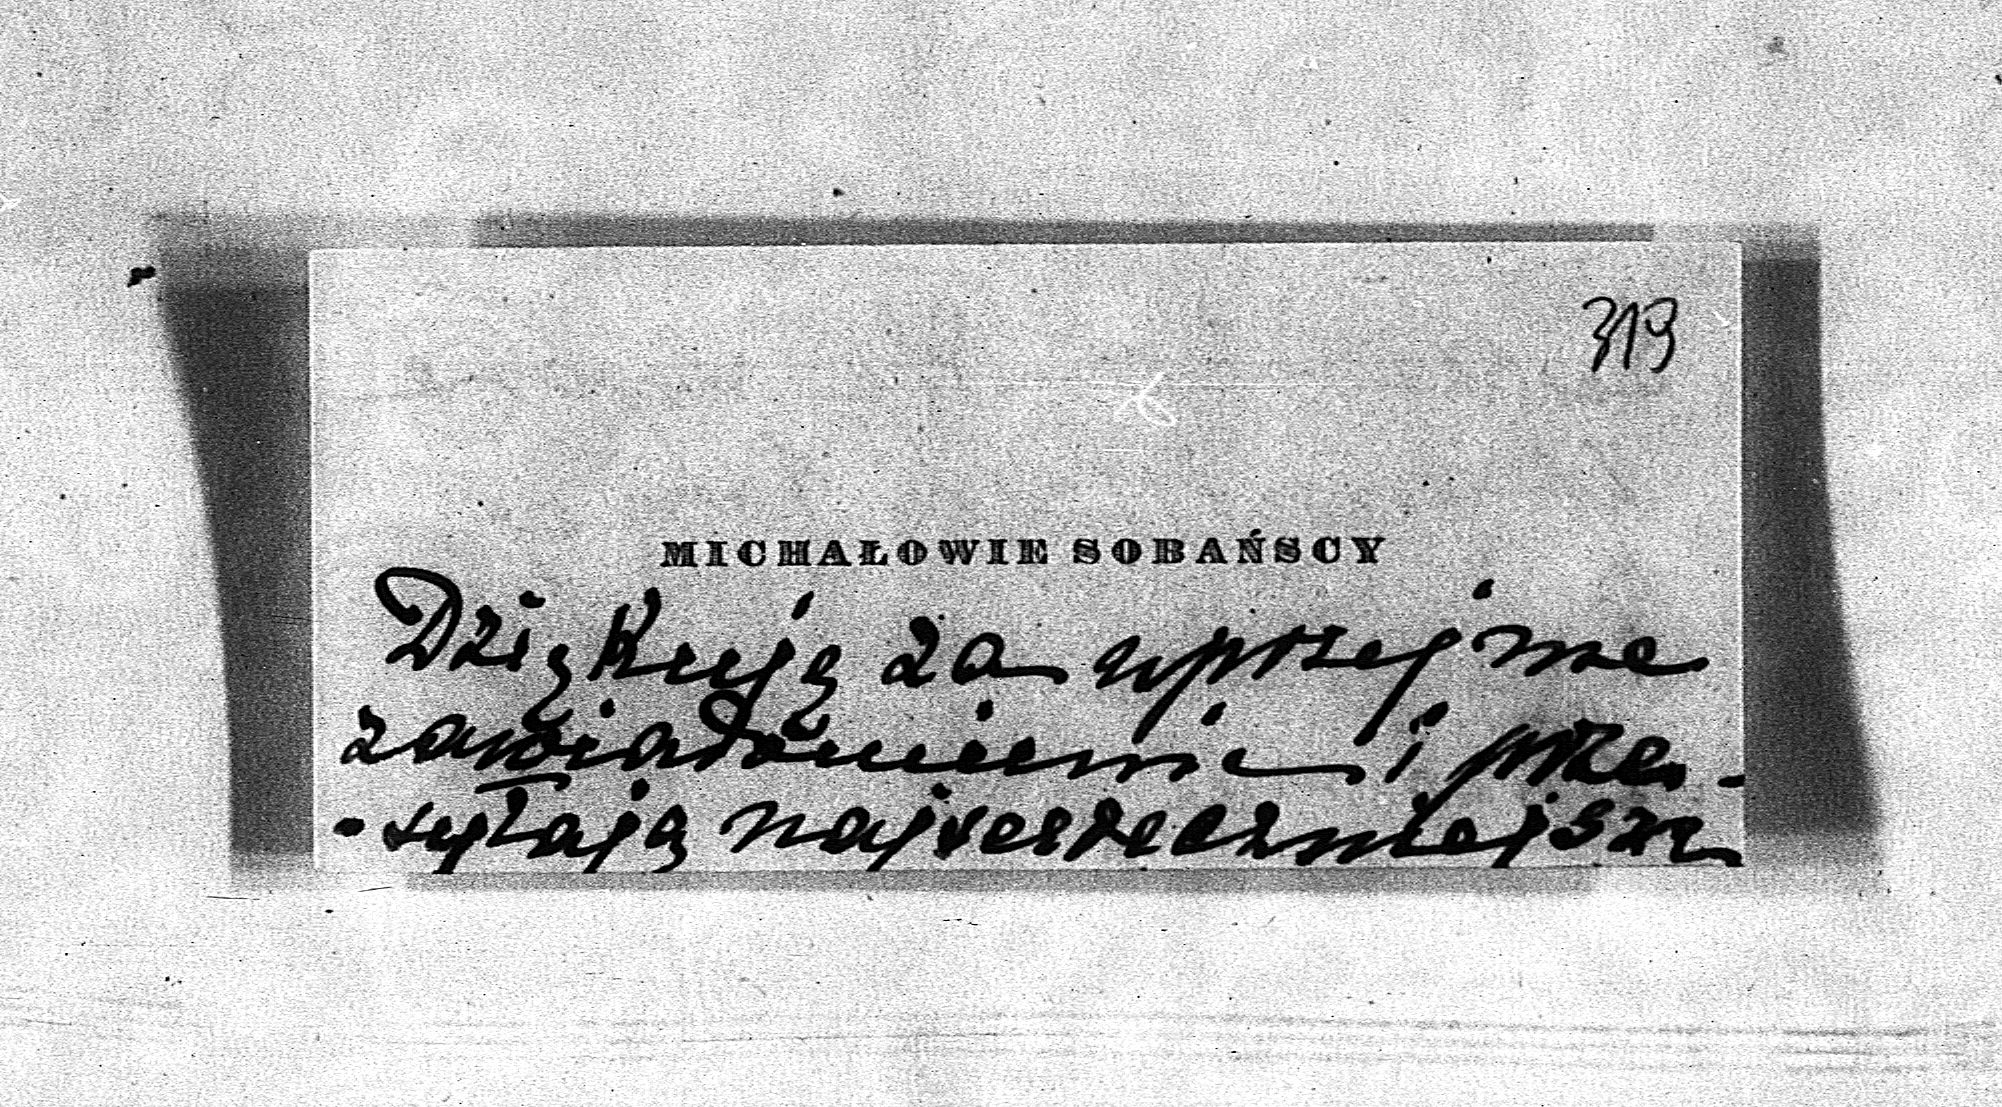 319
MICHAŁOWIE SOBAŃSCY
Dziękują za uprzejme
zawiadomienie i prze-
-syłają najserdeczniejsze